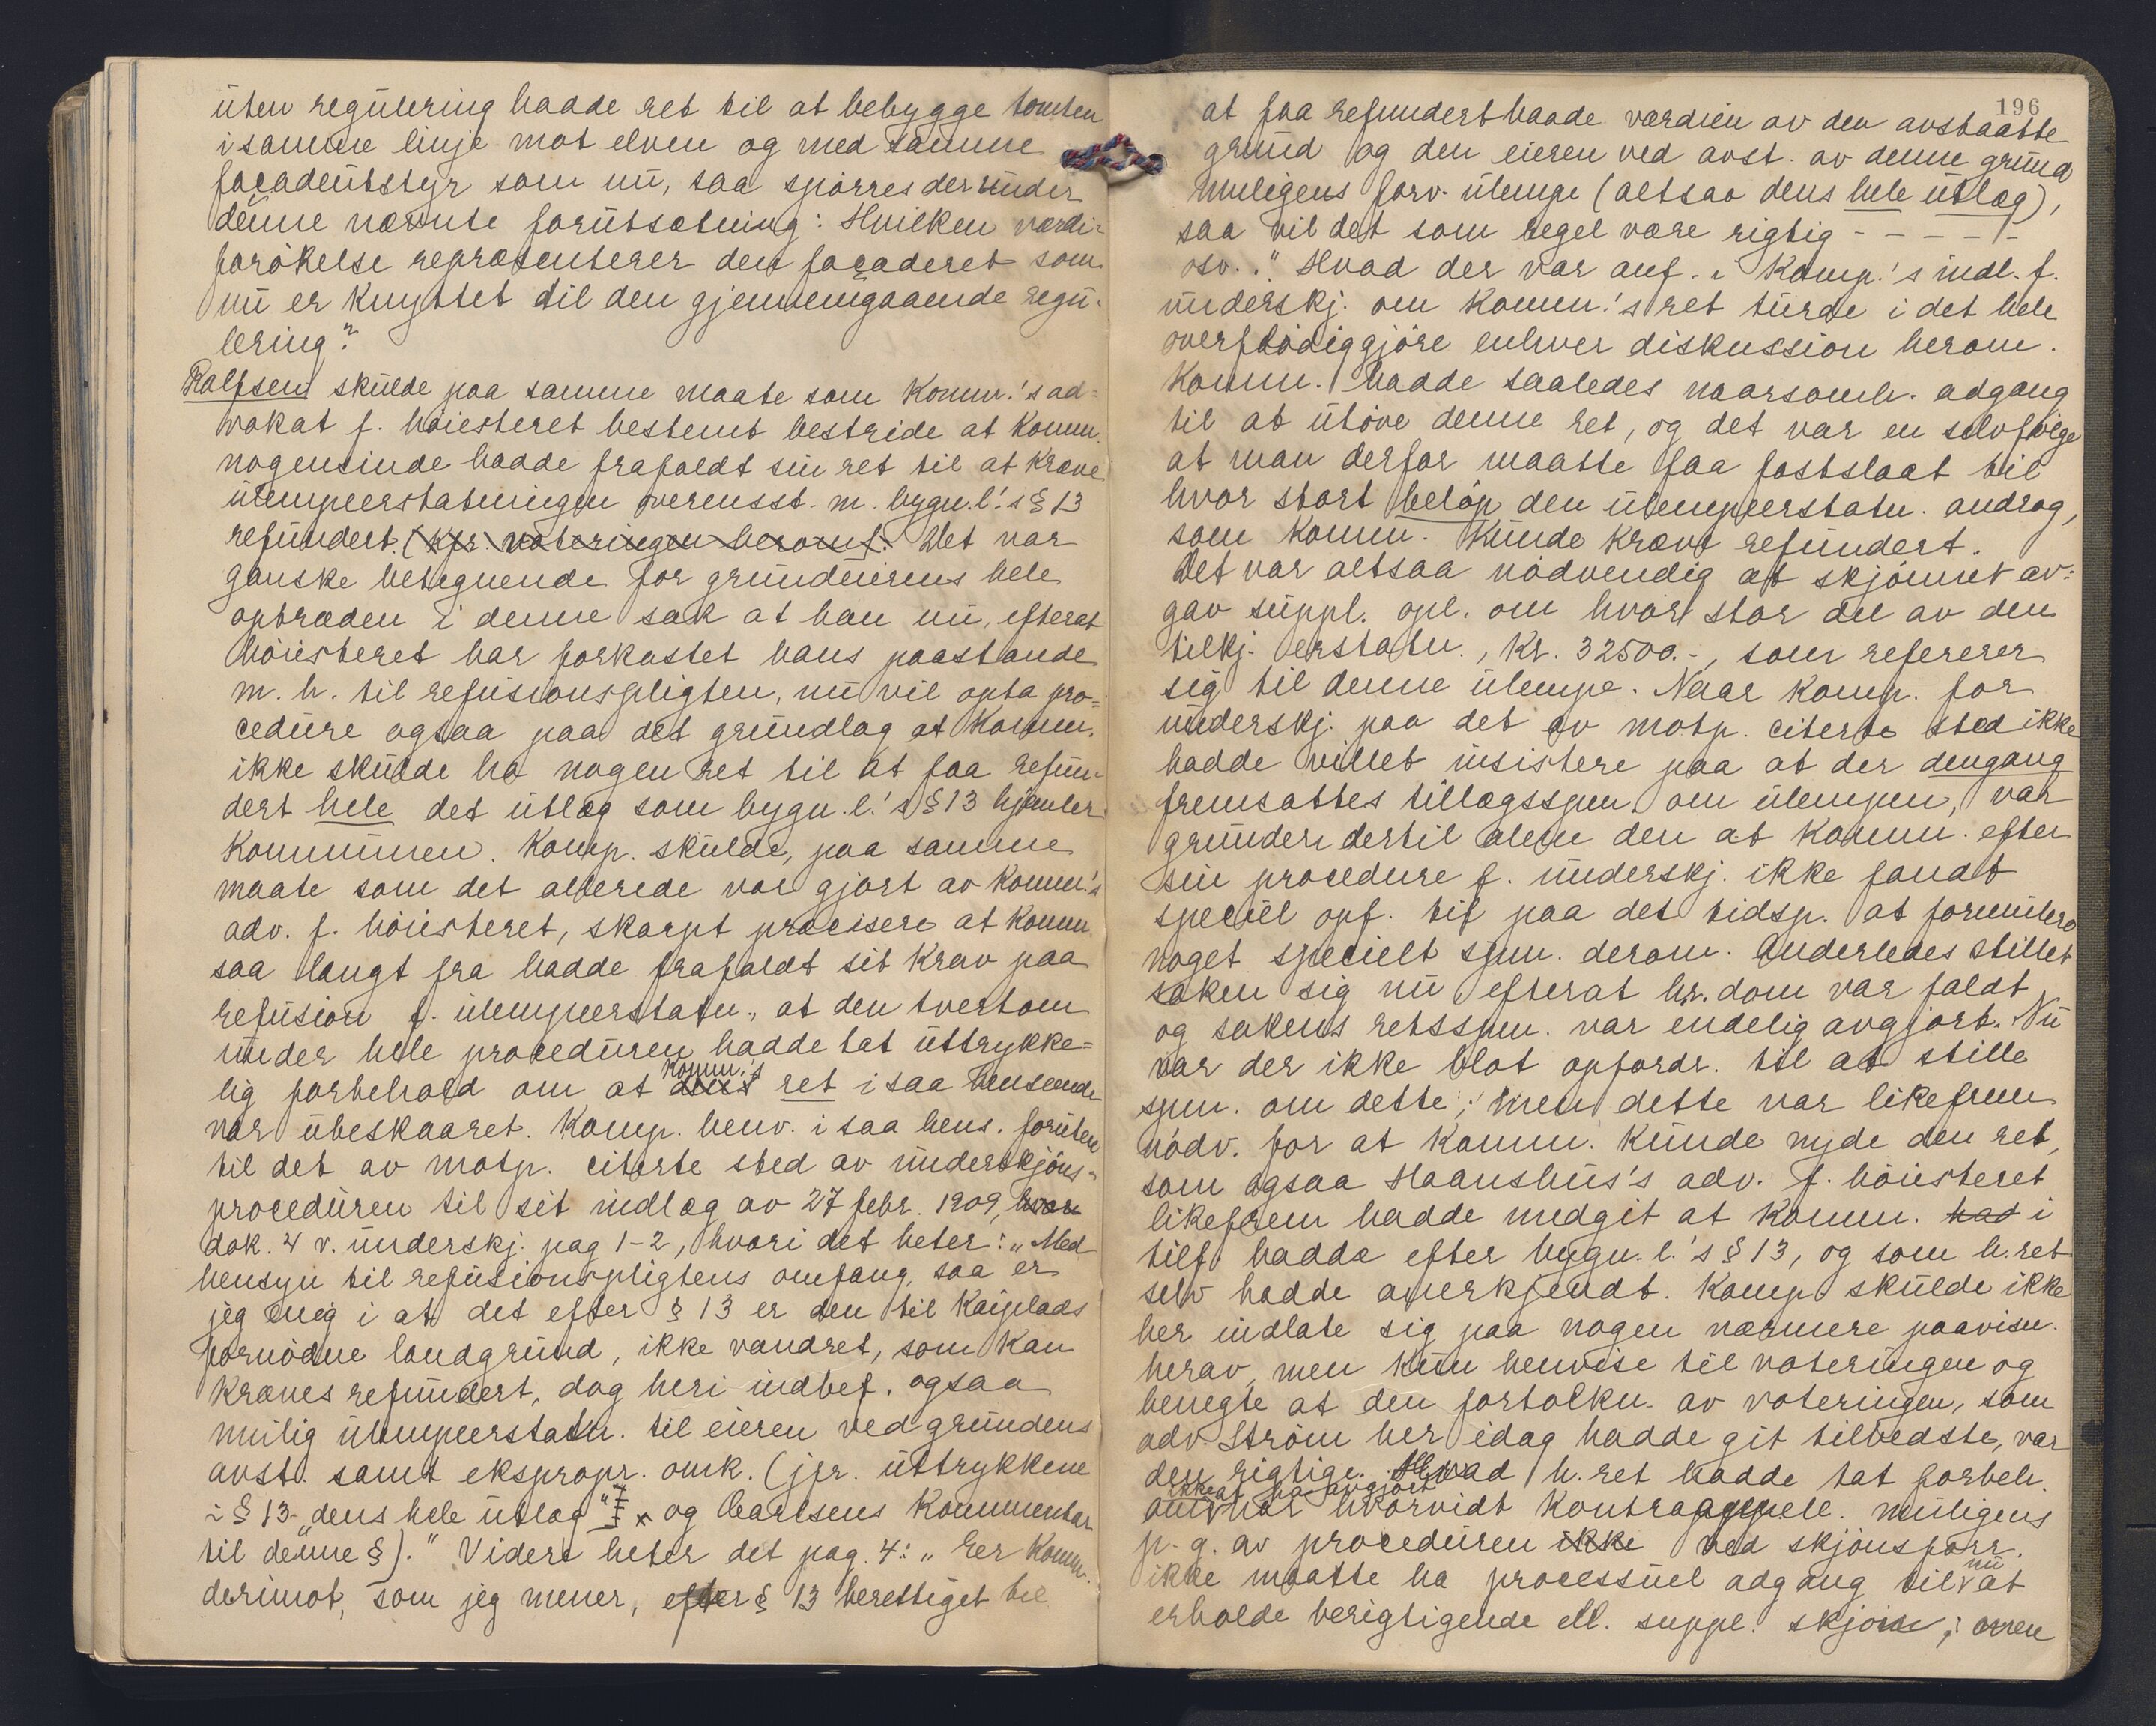 uten regulering hadde ret til at bebygge tomten
i samme linje mot elven og med samme
façadeutstyr som nu, saa spörres der under
denne nævnte forutsætning: Hvilken værdi-
forökelse repræsenterer den façaderet som
nu er knyttet til den gjennemgaaende regu-
lering?"
Rolfsen skulde paa samme maate som Komm.'s ad-
vokat f. höiesteret bestemt bestride at Komm.
nogensinde hadde frafaldt sin ret til at kræve
ulempeerstatningen overensst. m. bygn.l.'s § 13
refundert. (kfr. voteringen herom). Det var
ganske betegnende for grundeierens hele
optræden i denne sak at han nu, efterat
höiesteret har forkastet hans paastande
m. h. til refusionspligten, nu vil opta pro-
cedure ogsaa paa det grundlag at Komm.
ikke skulde ha nogen ret til at faa refun-
dert hele det utlæg som bygn.l.'s § 13 hjemler
Kommunen. Komp. skulde, paa samme
maate som det allerede var gjort av Komm.'s
adv. f. höiesteret, skarpt præcisere at Komm.
saa langt fra hadde frafaldt sit krav paa
refusion f. ulempeerstatn., at den tvertom
under hele proceduren hadde tat uttrykke-
lig forbehold om at dens Komm.'s ret i saa henseende
var ubeskaaret. Komp. henv. i saa hens. foruten
til det av motp. citerte sted av underskjöns-
proceduren til sit indlæg av 27 febr. 1909, hvor
dok. 4 v. underskj. pag 1-2, hvori det heter: "Med
hensyn til refusionspligtens omfang, saa er
jeg enig i at det efter § 13 er den til Kaiplads
fornödne landgrund, ikke vandret, som kan
kræves refundert, dog heri indbef. ogsaa
mulig ulempeerstatn. til eieren ved grundens
avst. samt ekspropr. omk. (jfr. uttrykkene
i § 13 "dens hele utlæg" og Carlsens Kommentar
til denne §)." Videre heter det pag. 4: "Er Komm.
derimot, som jeg mener, efter § 13 berettiget til
196
at faa refundert baade værdien av den avstaatte
grund og den eieren ved avst. av denne grund
muligens forv. ulempe (altsaa dens hele utlæg),
saa vil det som regel være rigtig - - - - -
osv.." Hvad der var anf. i Komp.'s indl. f.
underskj. om Komm.'s ret turde i det hele
overflödiggjöre enhver diskussion herom.
Komm. hadde saaledes naarsomh. adgang
til at utöve denne ret, og det var en selvfölge
at man derfor maatte faa fastslaat til
hvor stort belöp den ulempeerstatn. androg,
som Komm. kunde kræve refundert.
Det var altsaa nödvendig at skjönnet av-
gav suppl. opl. om hvor stor del av den
tilkj. erstatn., kr. 32500.-, som refererer
sig til denne ulempe. Naar Komp. for
underskj. paa det av motp. citerte sted ikke
hadde villet insistere paa at der dengang
fremsattes tillægsspm. om ulempen, var
grunden dertil alene den at Komm. efter
sin procedure f. underskj. ikke fandt
speciel opf. til paa det tidsp. at formulere
noget specielt spm. derom. Anderledes stillet
saken sig nu efterat hr. dom var faldt
og sakens retsspm. var endelig avgjort. Nu
var der ikke blot opfordr. til at stille
spm. om dette; men dette var likefrem
nödv. for at Komm. kunde nyde den ret,
som ogsaa Haanshus's adv. f. höiesteret
likefrem hadde medgit at Komm. had i
tilf. hadde efter bygn.l.'s § 13, og som h.ret
selv hadde anerkjendt. Komp. skulde ikke
her indlate sig paa nogen nærmere paavisn.
herav, men kun henvise til voteringen og
benegte at den fortolkn. av voteringen, som
adv. Ström her idag hadde git tilbedste, var
den rigtige. Hvad h.ret hadde tat forbeh.
ikke at ha avgjort
om var hvorvidt kontraappell. muligens
p. g. av proceduren ikke ved skjönsforr.
ikke maatte ha processuel adgang til nu at
erholde berigtigende ell. suppl. skjön; men